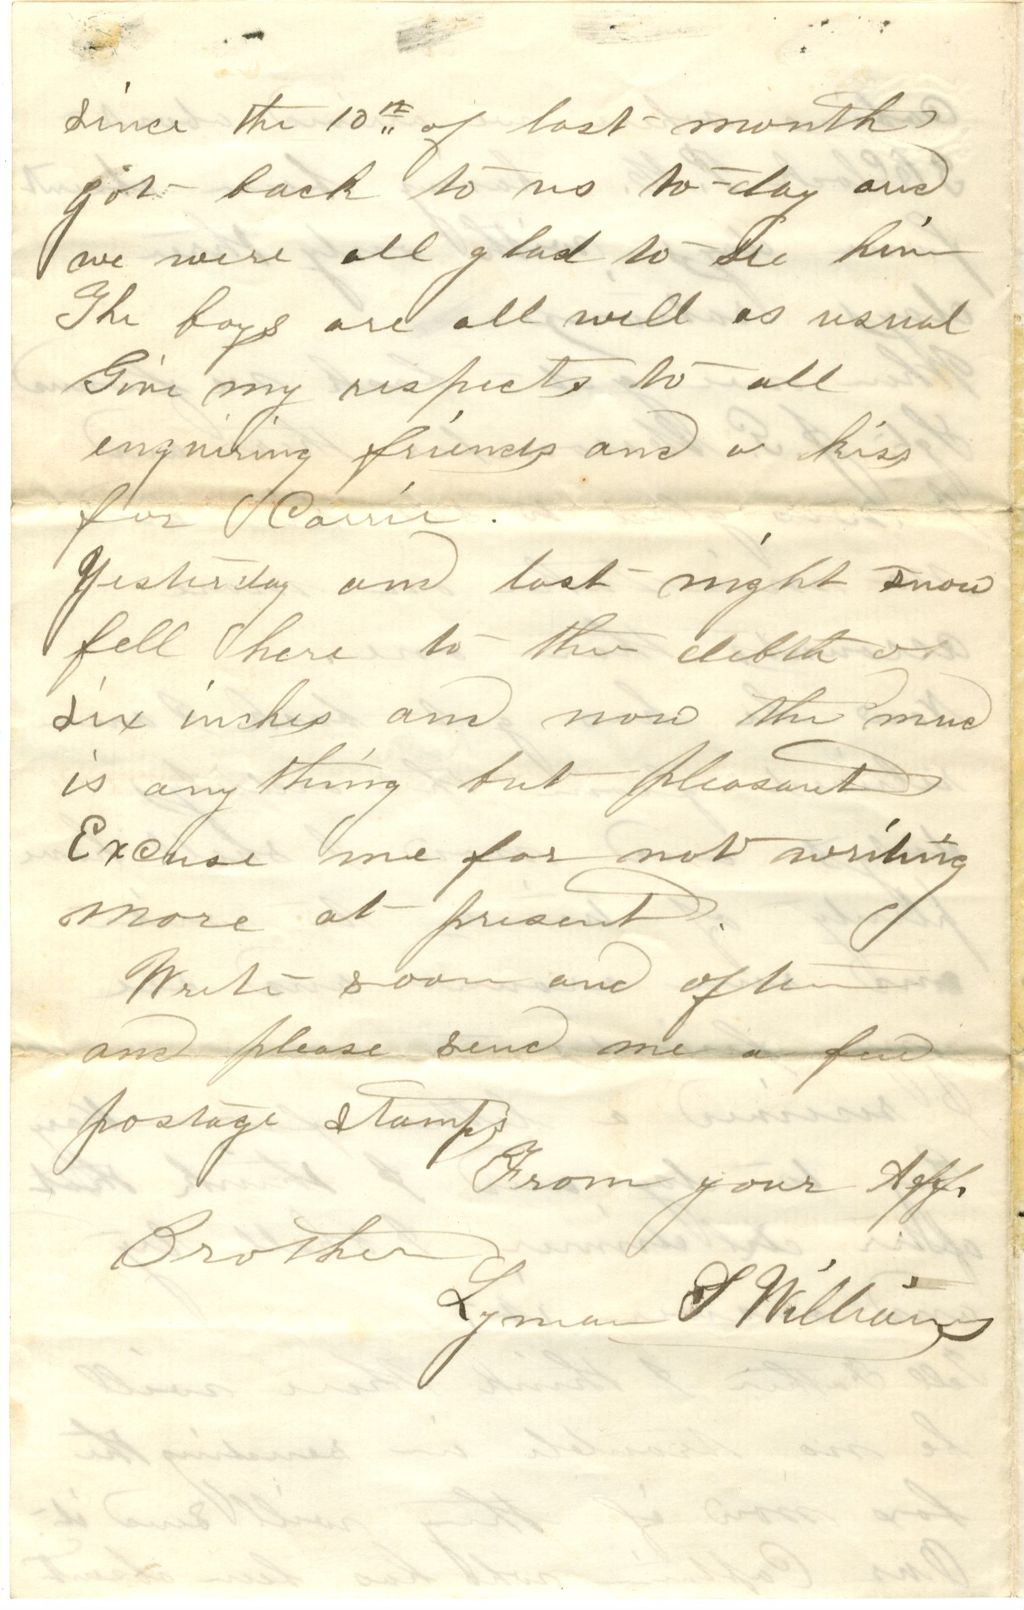 since the 10th of last month
got back to us to-day and
we were all glad to see him
The boys are all well as usual
Give my respects to all
enquiring friends and a kiss
for Carrie.
Yesterday and last night snow
fell here to the debth of
six inches and now the mud
is any thing but pleasant
Excuse me for not writing
more at present.
Write soon and often
and please send me a few
postage stamps
From your Aff.
Brother
Lyman S Williams